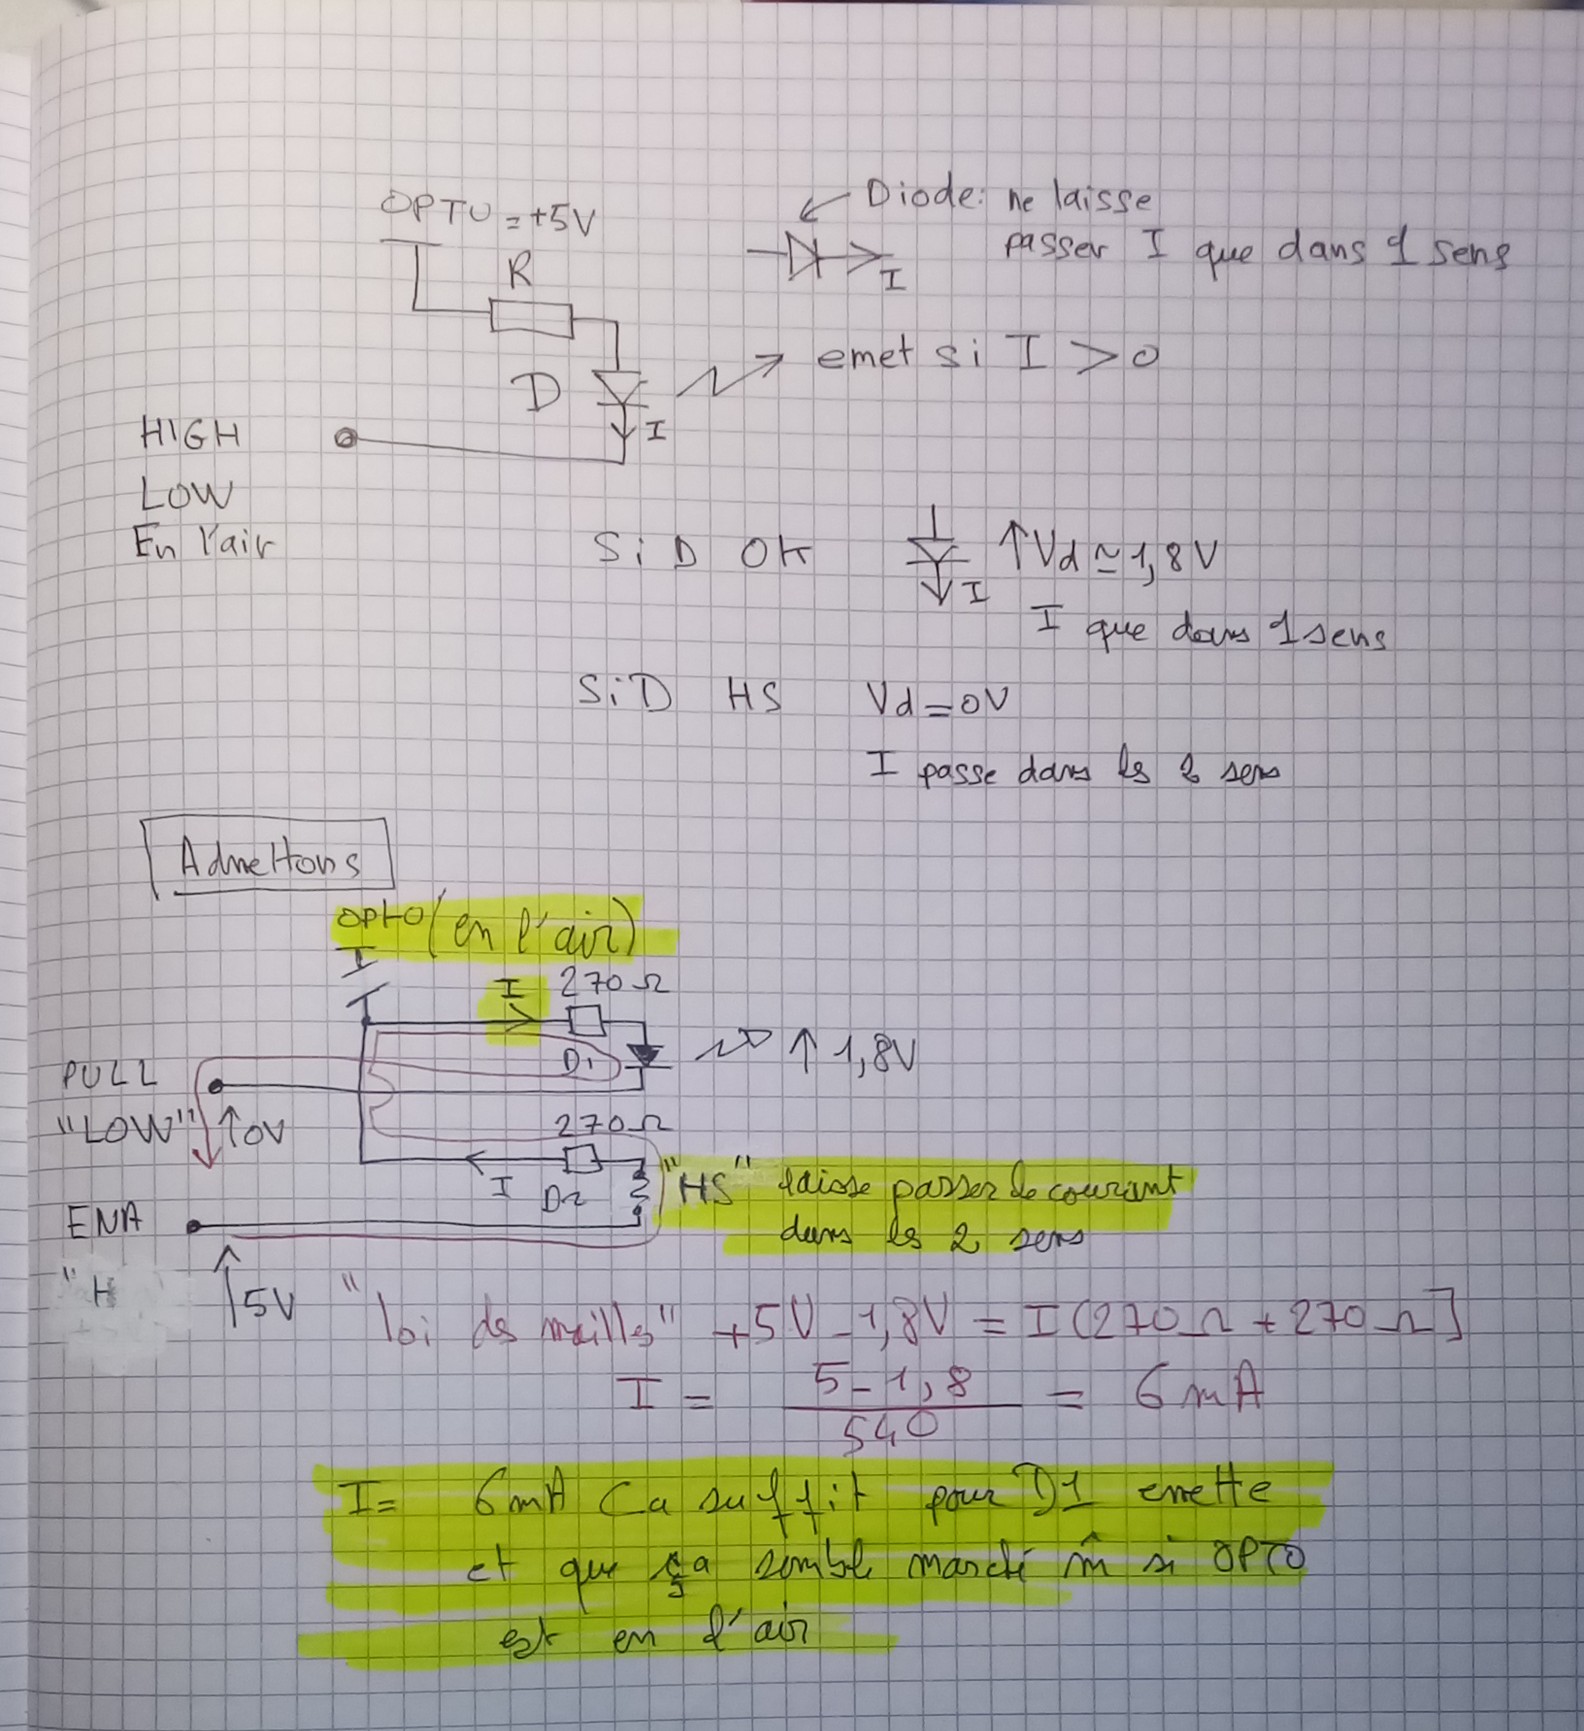 OPTO = +5V
Diode: ne laisse
passer I que dans 1 sens
R
I
emet si I > 0
D
I
HIGH
LOW
En l'air
Si D OK
↑Vd ≃ 1,8V
I
I que dans 1 sens
Si D HS Vd = 0V
I passe dans les 2 sens
Admettons
OPTO (en l'air)
I 270Ω
D1 ↑ 1,8V
PULL
"LOW" ↑0V
270Ω
I D2 "HS" laisse passer le courant
dans les 2 sens
ENA
"H
↑5V
"loi des mailles" +5V - 1,8V = I (270Ω + 270Ω]
I = 5 - 1,8 / 540 = 6 mA
I = 6 mA Ca suffit pour D1 emette
et que ça semble marché m̂ si OPTO
est en l'air